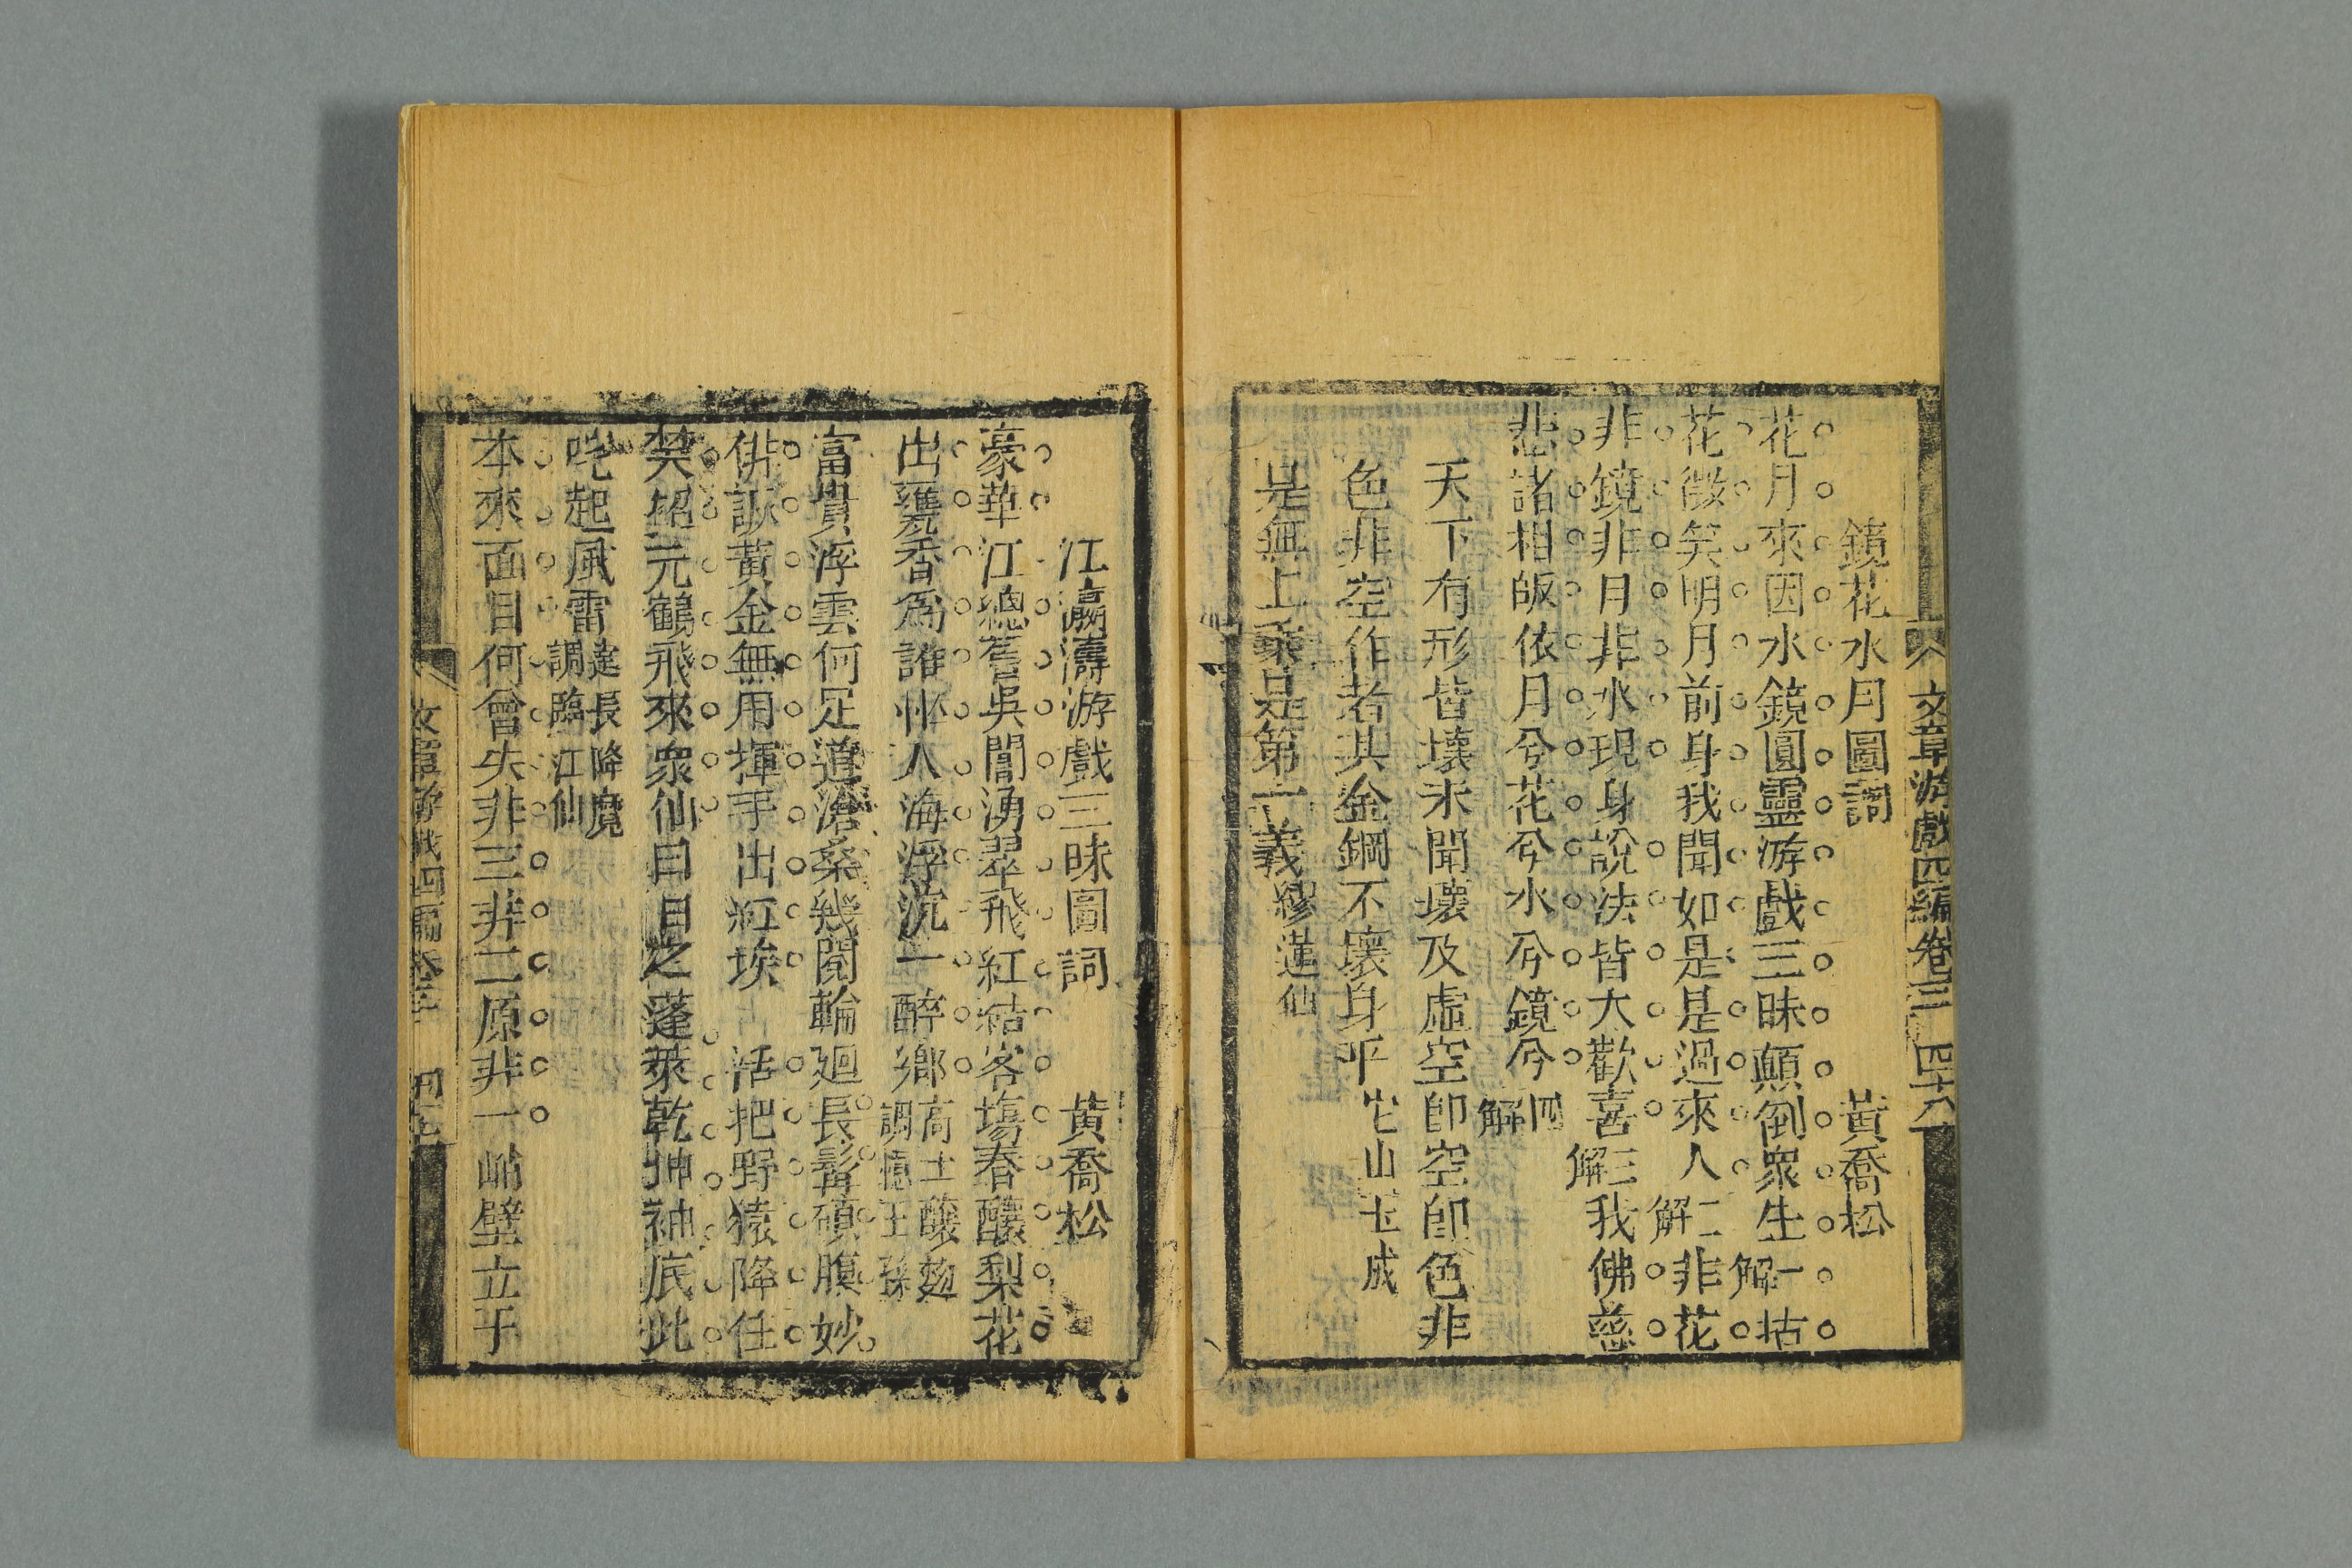 文章游戲四編卷三 四六
鏡花水月圖詞 黃喬松
花月來因水鏡圓靈游戲三昧顛倒衆生一解拈
花微笑明月前身我聞如是是過來人二解非花
非鏡非月非水現身說法皆大歡喜三解我佛慈
悲諸相皈依月兮花兮水兮鏡兮四解
天下有形皆壞未聞壞及虛空卽空卽色非
色非空作者其金鋼不壞身乎 山玉成
是無上乘是第一義繆蓮仙
江瀛濤游戲三昧圖詞 黃喬松
豪華江總舊吳閶湧翠飛紅結客塲春釀梨花
出甕香爲誰忙人海浮沈一醉鄉高士釀麹
調憶王孫
富貴浮雲何足道滄桑幾閱輪廻長髯碩腹妙
俳詼黃金無用揮手出紅埃 活把野猿降住
笑招元鶴飛來衆仙同日之蓬萊乾坤袖底此
咤起風雷達長降魔
調臨江仙
本來面目何曾失非三非二原非一峭壁立乎
文章游戲四編卷三